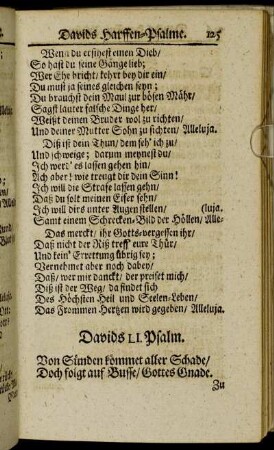 Davids Harffen-Psalme. 125
Wenn du ersihest einen Dieb/
So hast du seine Gänge lieb;
Wer Ehr bricht/ kehrt bey dir ein/
Du must ja seines gleichen seyn;
Du brauchst dein Maul zur bösen Mähr/
Sagst lauter falsche Dinge her/
Weißt deinen Bruder wol zu richten/
Und deiner Mutter Sohn zu sichten/ Alleluja.
Diß ist dein Thun/ dem seh' ich zu/
Und schweige; darum meynest du/
Ich werd' es lassen gehen hin/
Ach aber! wie treugt dir dein Sinn!
Ich will die Strafe lassen gehn/
Daß du solt meinen Eifer sehn/
Ich will dirs unter Augen stellen/ (luja.
Samt einem Schrecken-Bild der Höllen/ Alle-
Das merckt/ ihr Gotts-vergessen ihr/
Daß nicht der Riß treff' eure Thür/
Und kein' Errettung übrig sey;
Vernehmet aber noch dabey/
Daß/ wer mir danckt/ der preiset mich/
Diß ist der Weg/ da findet sich
Des Höchsten Heil und Seelen-Leben/
Das Frommen Hertzen wird gegeben/ Alleluja.
Davids LI. Psalm.
Von Sünden kömmet aller Schade/
Doch folgt auf Busse/ Gottes Gnade.
Zu